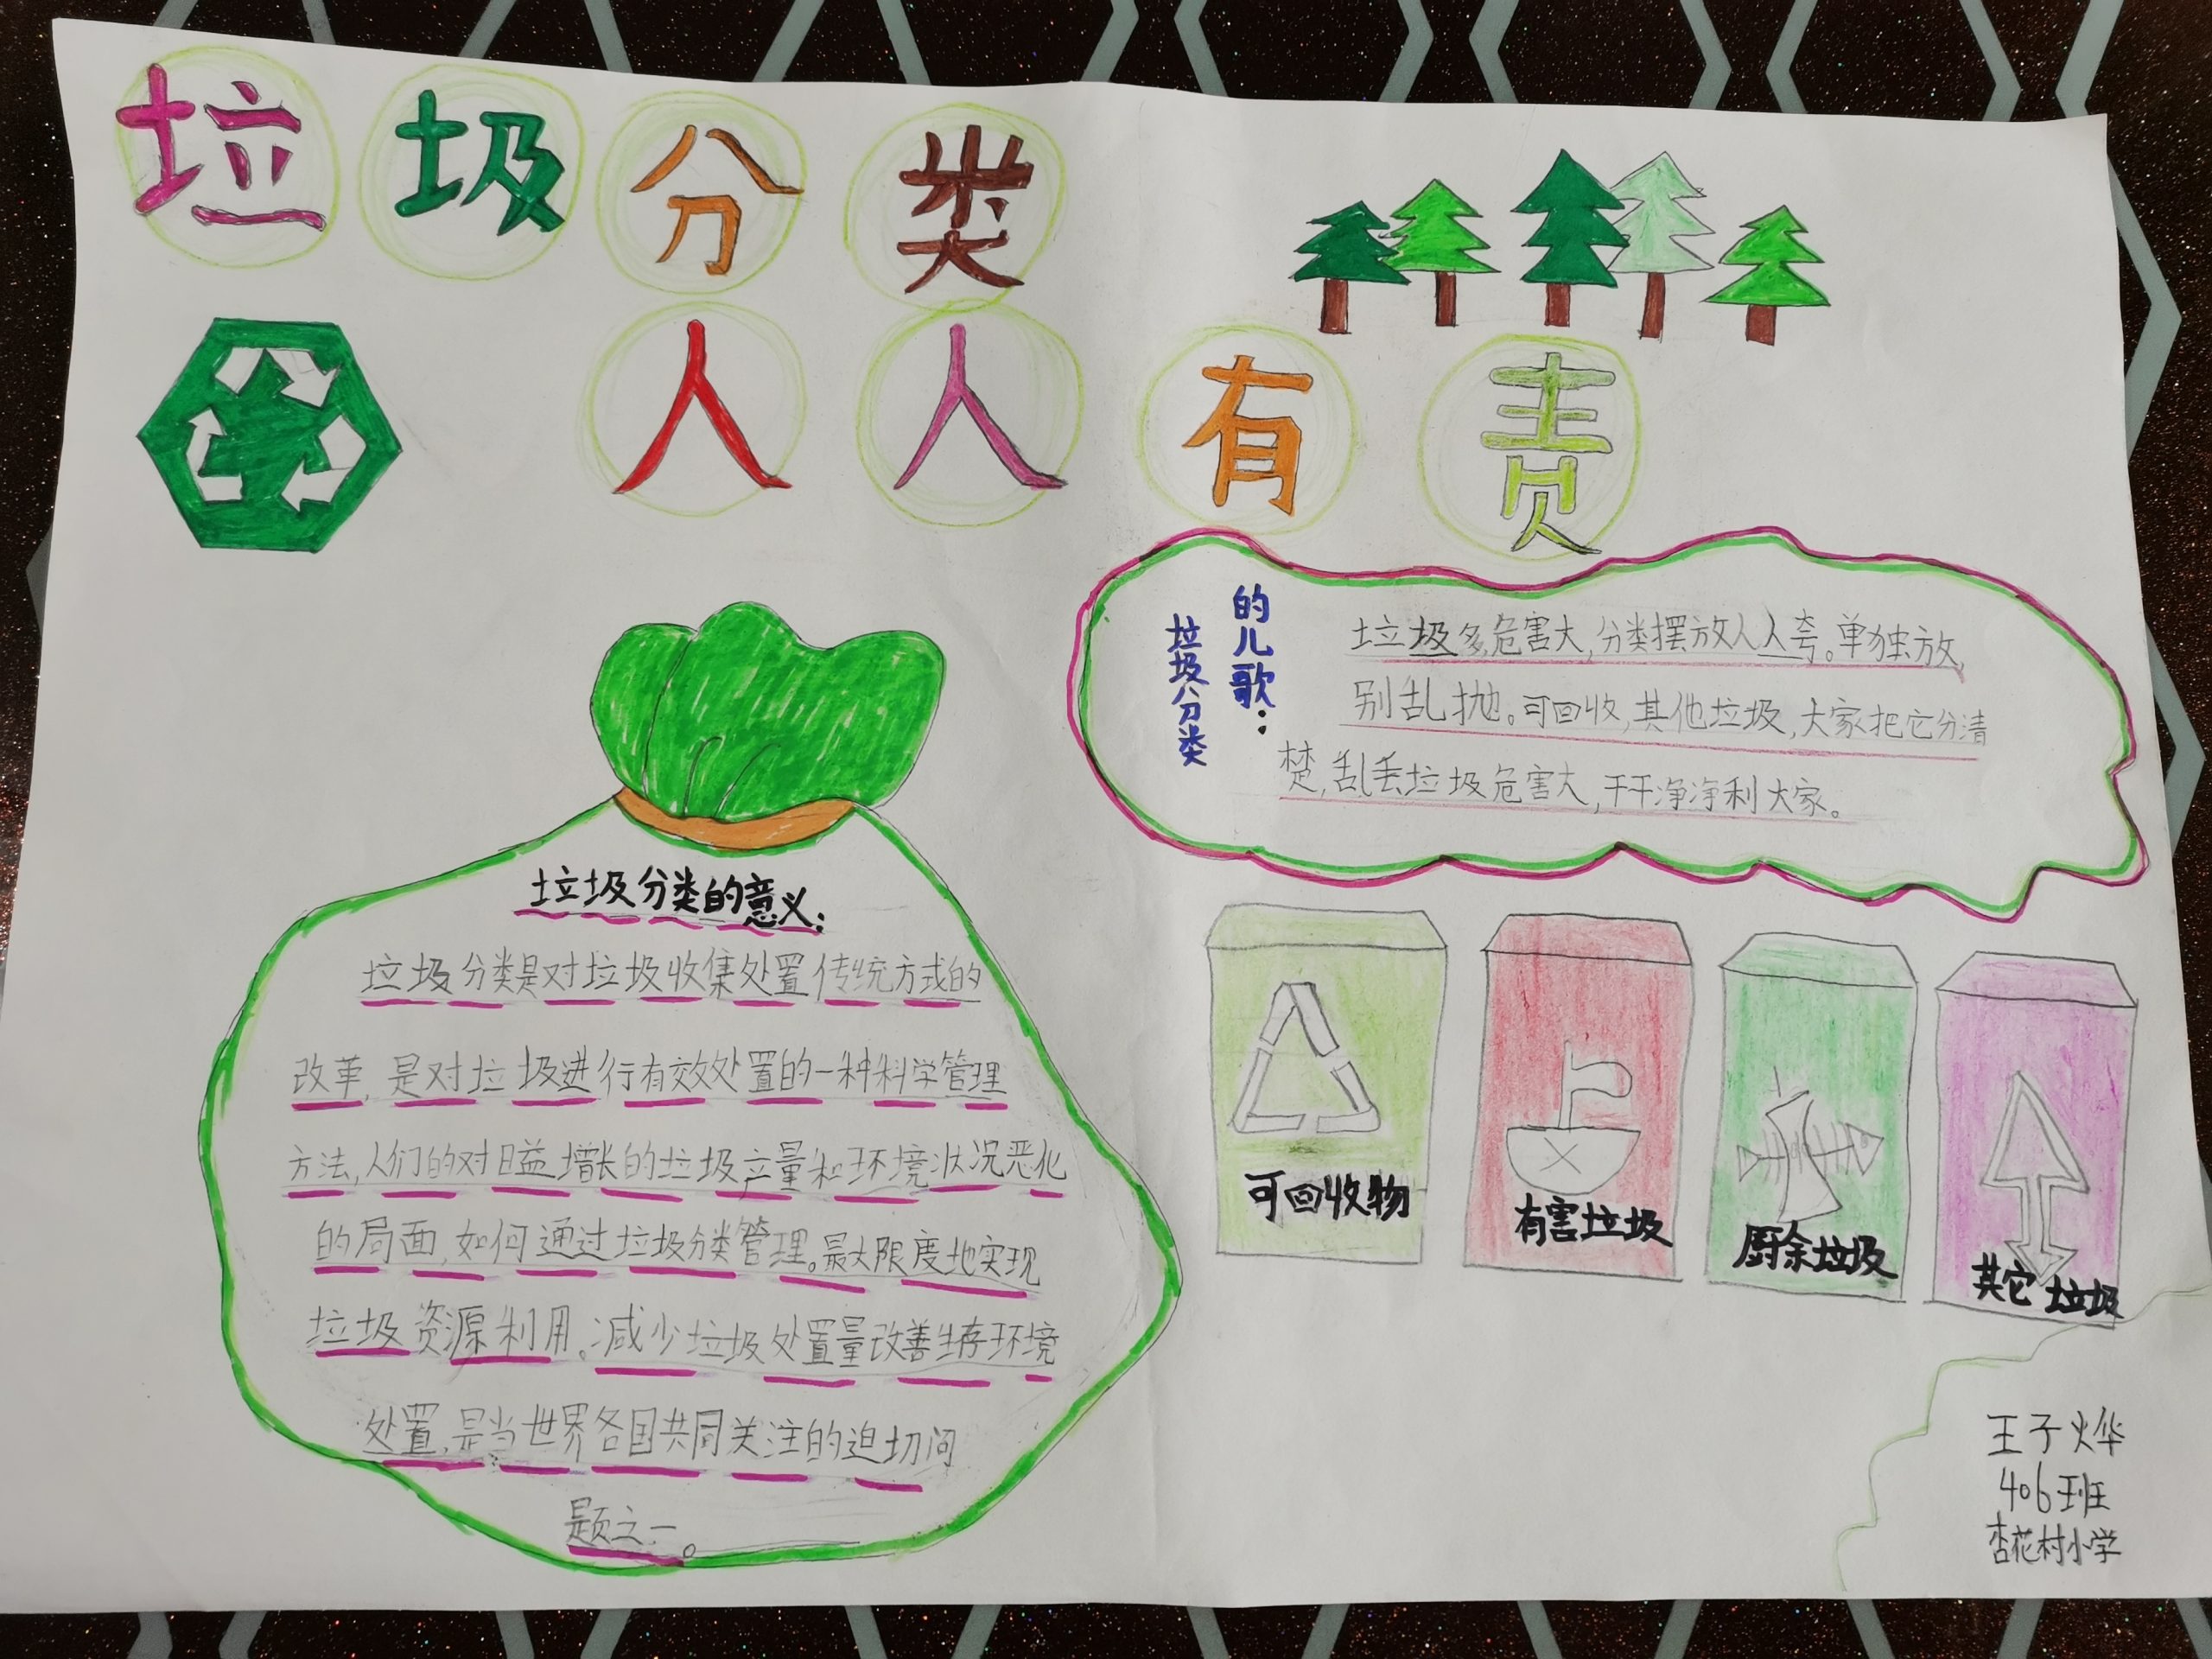 垃圾分类
人人有责
垃圾分类
的儿歌：
垃圾多危害大,分类摆放人人夸。单独放,
别乱抛。可回收,其他垃圾,大家把它分清
楚,乱丢垃圾危害大,干干净净利大家。
垃圾分类的意义：
垃圾分类是对垃圾收集处置传统方式的
改革,是对垃圾进行有效处置的一种科学管理
方法,人们的对日益增长的垃圾产量和环境状况恶化
的局面,如何通过垃圾分类管理。最大限度地实现
垃圾资源利用。减少垃圾处置量改善生存环境
处置,是当世界各国共同关注的迫切问
题之一。
可回收物
有害垃圾
厨余垃圾
其它垃圾
王子烨
406班
杏花村小学